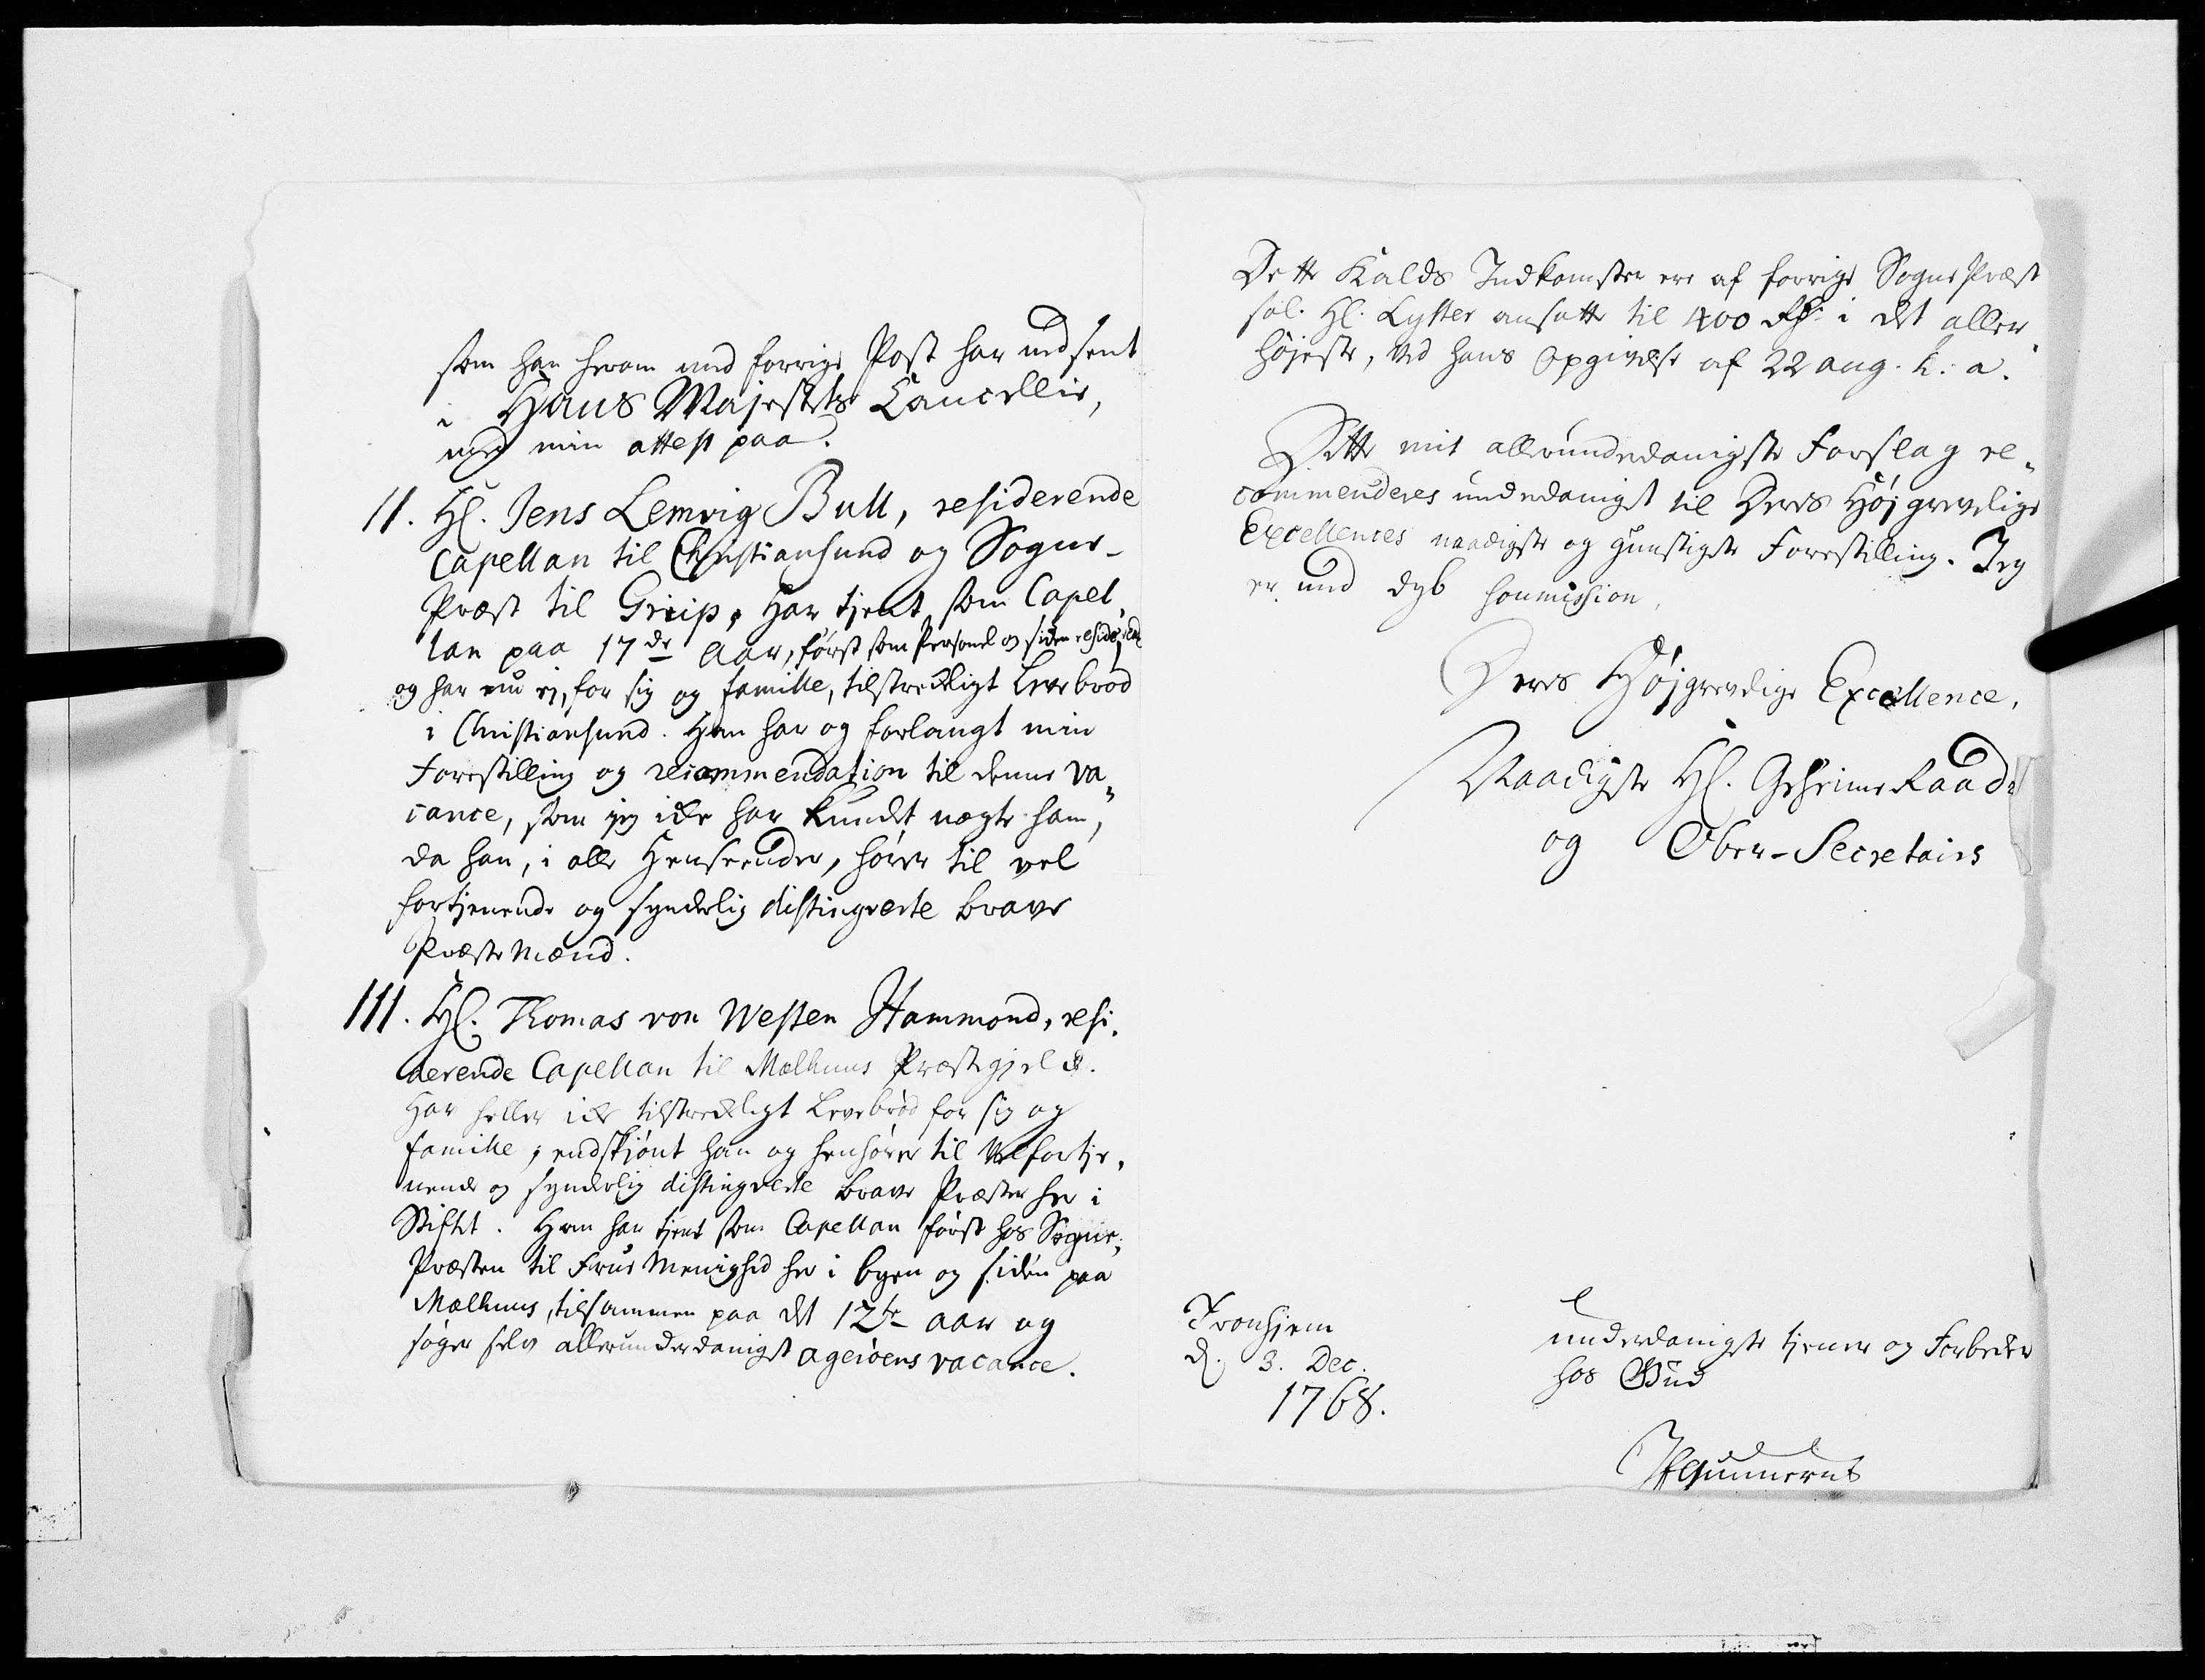 som han herom med forrige Post har indsent
i Hans Majestets Cancellie,
med min attest paa.
II. Hl. Jens Lemvig Bull, residerende
Capellan til Christiansund og Sogne-
Præst til Griip, har tjent som Capel,
lan paa 17de Aar, først som Personel og siden residerende
og har nu ej, for sig og famille, tilstrækligt Levebrød
i Christiansund. Han har og forlangt min
Forestilling og recommendation til denne va„
cance, som jeg ikke har kundet nægte ham,
da han, i alle Henseender, hører til vel
fortjenende og synderlig distingverte brave
Præstemænd.
III. Hl. Thomas von Westen Hammond, resi„
derende Capellan til Mælhuus Præstegjeld.
Har heller ikke tilstrækligt Levebrød for sig og
famille, endskjønt han og henhører til Velfortje„
nende og synderlig distingverte brave Præster her i
Stiftet. Han har tjent som Capellan først hos Sogne„
Præsten til Frue Menighed her i byen og siden paa
Mælhuus, tilsammen paa det 12te aar og
søger selv allerunderdanigst agerøens vacance.
Dette Kalds Indkomster ere af forrige Sogne Præst
sal. Hl. Lyster ansatte til 400 Rd. i det aller„
højeste, ved hans Opgivelse af 22 aug. h. a.
Dette mit allerunderdanigste Forslag re„
commenderes underdanigst til Deres Højgrevelige
Excellences naadigste og gunstigste Forestilling. Jeg
er med dyb soumission,
Deres Højgrevelige Excellence,
Naadigste Hl. Geheime Raads
og Ober-Secretairs
Tronhjem
d. 3. Dec.
1768.
underdanigste tjener og Forbeder
hos Gud
JEGunnerus